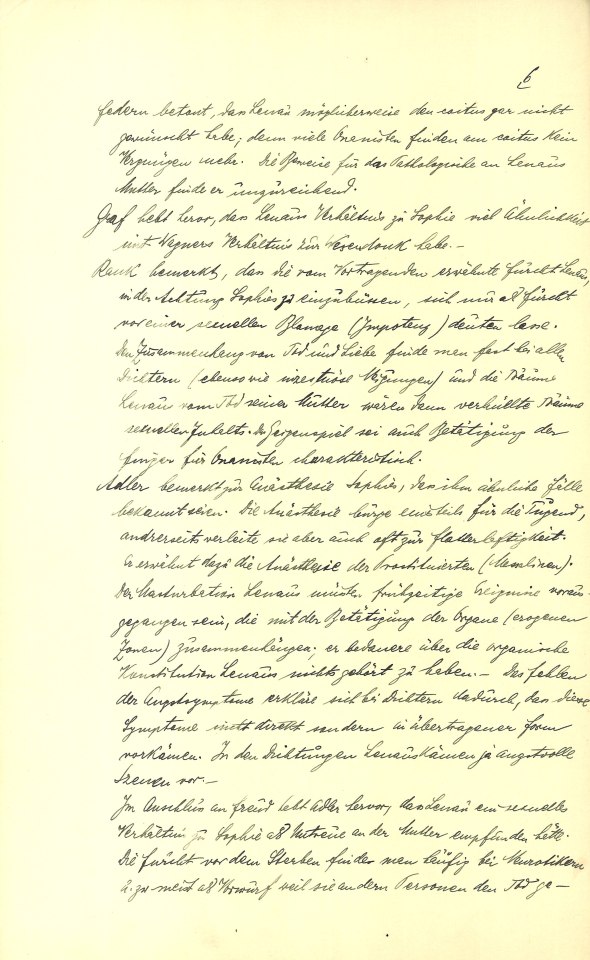 6
Federn betont, dass Lenau möglicherweise den coitus gar nicht
gewünscht habe; denn viele Onanisten finden am coitus kein
Vergnügen mehr. Die Beweise für das Pathologische an Lenaus
Mutter finde er unzureichend.
Graf hebt hervor, dass Lenaus Verhältnis zu Sophie viel Ähnlichkeit
mit Wagners Verhältnis zur Wesendonk habe. –
Rank bemerkt, dass die vom Vortragenden erwähnte Furcht Lenaus,
in der Achtung Sophies zu einzubüssen, sich nur als Furcht
vor einer sexuellen Blamage (Impotenz) deuten lasse.
Den Zusammenhang von Tod und Liebe finde man fast bei allen
Dichtern (ebenso wie inzestuöse Neigungen) und die Träume
Lenaus vom Tod seiner Mutter wären dann verhüllte Träume
sexuellen Inhalts. Das Geigenspiel sei auch Betätigung der
Finger für Onanisten charakteristisch.
Adler bemerkt zur Anästhesie Sophies, dass ihm ähnliche Fälle
bekannt seien. Die Anästhesie bürge einesteils für die Tugend,
andrerseits verleite sie aber auch oft zur Flatterhaftigkeit.
Er erwähnt dazu die Anästhesie der Prostituierten (Messalinen).
Der Masturbation Lenaus müssten frühzeitige Ereignisse voraus-
gegangen sein, die mit der Betätigung der Organe (erogenen
Zonen) zusammenhängen; er bedauere über die organische
Konstitution Lenaus nichts gehört zu haben. – Das Fehlen
der Angstsymptome erkläre sich bei Dichtern dadurch, dass diese
Symptome nicht direkt sondern in übertragener Form
vorkämen. In den Dichtungen Lenaus kämen ja angstvolle
Szenen vor. –
Im Anschluss an Freud hebt Adler hervor, dass Lenau ein sexuelles
Verhältnis zu Sophie als Untreue an der Mutter empfunden hätte.
Die Furcht vor dem Sterben finde man häufig bei Neurotikern
u. zw. meist als Vorwurf weil sie andern Personen den Tod ge–